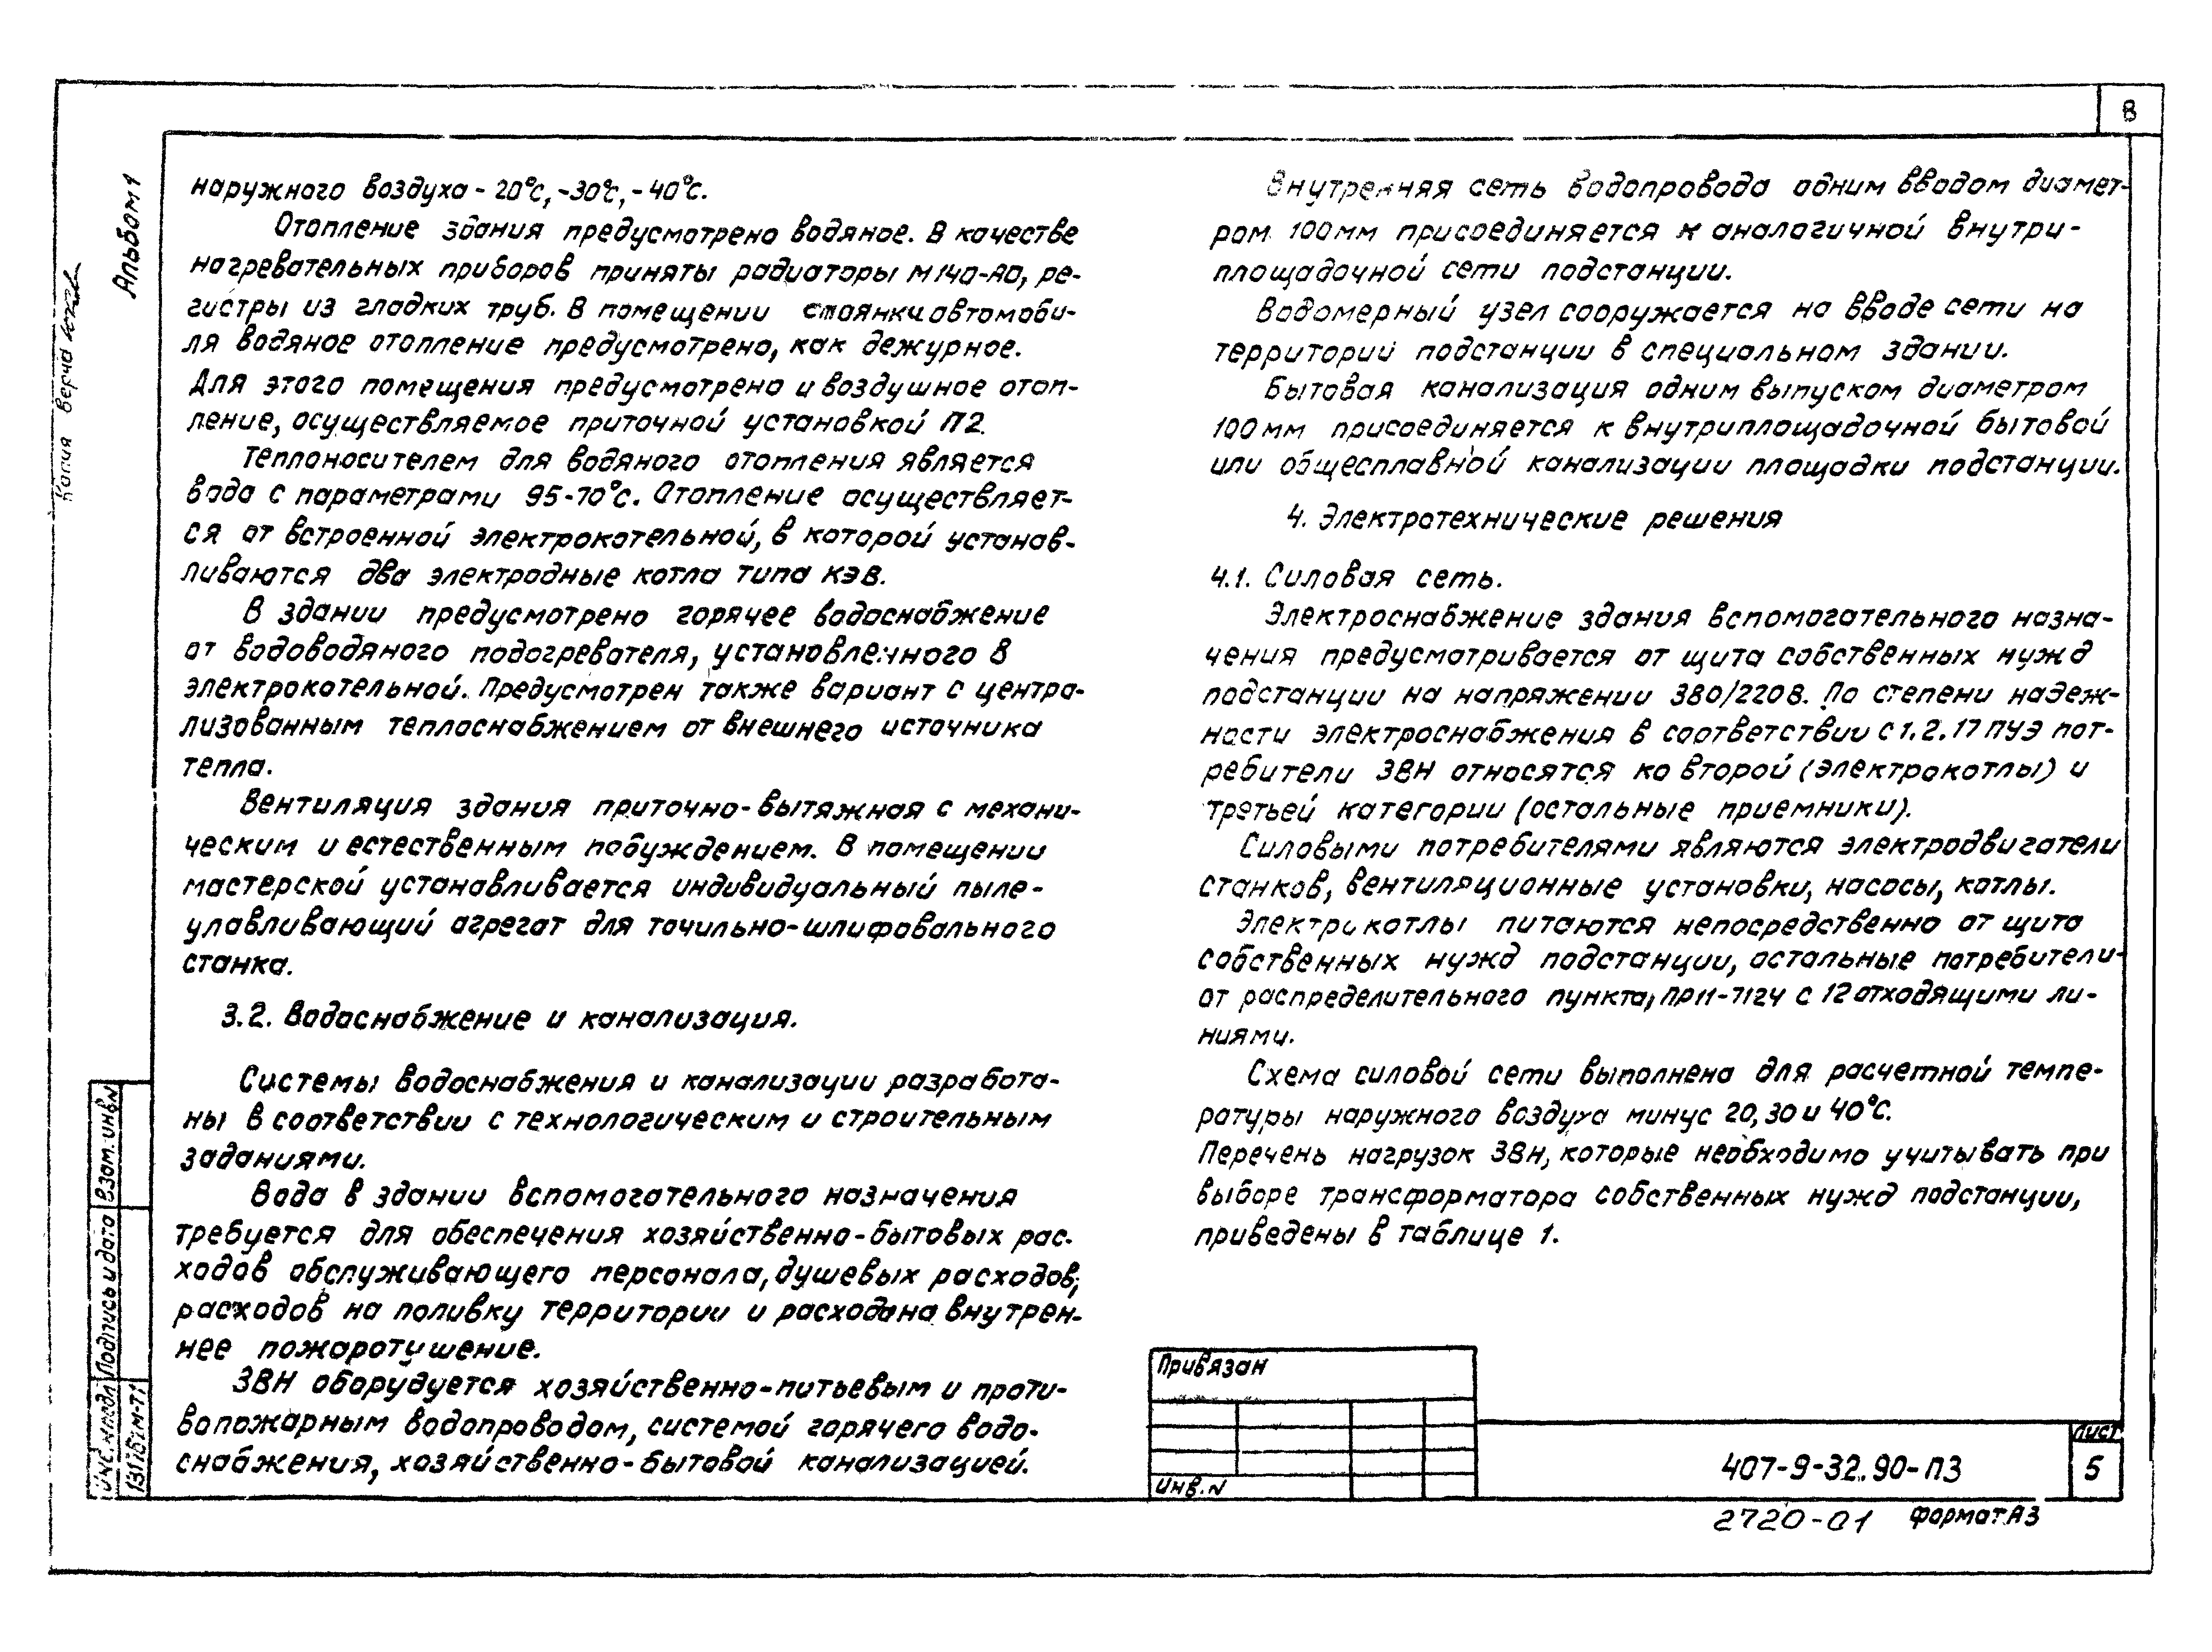 8
Альбом 1
Копия верна
наружного воздуха - 20°С, -30°С, - 40°С.
Отопление здания предусмотрено водяное. В качестве
нагревательных приборов приняты радиаторы М140-АО, ре-
гистры из гладких труб. В помещении стоянки автомоби-
ля водяное отопление предусмотрено, как дежурное.
Для этого помещения предусмотрено и воздушное отоп-
ление, осуществляемое приточной установкой П2.
Теплоносителем для водяного отопления является
вода с параметрами 95-70°С. Отопление осуществляет-
ся от встроенной электрокотельной, в которой устанав-
ливаются два электродные котла типа КЭВ.
В здании предусмотрено горячее водоснабжение
от водоводяного подогревателя, установленного в
электрокотельной. Предусмотрен также вариант с центра-
лизованным теплоснабжением от внешнего источника
тепла.
Вентиляция здания приточно-вытяжная с механи-
ческим и естественным побуждением. В помещении
мастерской устанавливается индивидуальный пыле-
улавливающий агрегат для точильно-шлифовального
станка.
3.2. Водоснабжение и канализация.
Системы водоснабжения и канализации разработа-
ны в соответствии с технологическим и строительным
заданиями.
Вода в здании вспомогательного назначения
требуется для обеспечения хозяйственно-бытовых рас-
ходов обслуживающего персонала, душевых расходов,
расходов на поливку территории и расхода на внутрен-
нее пожаротушение.
ЗВН оборудуется хозяйственно-питьевым и проти-
вопожарным водопроводом, системой горячего водо-
снабжения, хозяйственно-бытовой канализацией.
Внутренняя сеть водопровода одним вводом диамет-
ром 100мм присоединяется к аналогичной внутри-
площадочной сети подстанции.
Водомерный узел сооружается на вводе сети на
территории подстанции в специальном здании.
Бытовая канализация одним выпуском диаметром
100мм присоединяется к внутриплощадочной бытовой
или общесплавной канализации площадки подстанции.
4. Электротехнические решения
4.1. Силовая сеть.
Электроснабжение здания вспомогательного назна-
чения предусматривается от щита собственных нужд
подстанции на напряжении 380/220В. По степени надеж-
ности электроснабжения в соответствии с 1.2.17 ПУЭ пот-
ребители ЗВН относятся ко второй (электрокотлы) и
третьей категории (остальные приемники).
Силовыми потребителями являются электродвигатели
станков, вентиляционные установки, насосы, котлы.
Электрокотлы питаются непосредственно от щита
собственных нужд подстанции, остальные потребители-
от распределительного пункта, ПР11-7124 с 12 отходящими ли-
ниями.
Схема силовой сети выполнена для расчетной темпе-
ратуры наружного воздуха минус 20, 30 и 40°С.
Перечень нагрузок ЗВН, которые необходимо учитывать при
выборе трансформатора собственных нужд подстанции,
приведены в таблице 1.
Взам. инв. N
Подпись и дата
Инв. N подл
13116тм-Т1
Привязан
Инв. N
407-9-32.90-ПЗ
Лист
5
2720-01
Формат А3